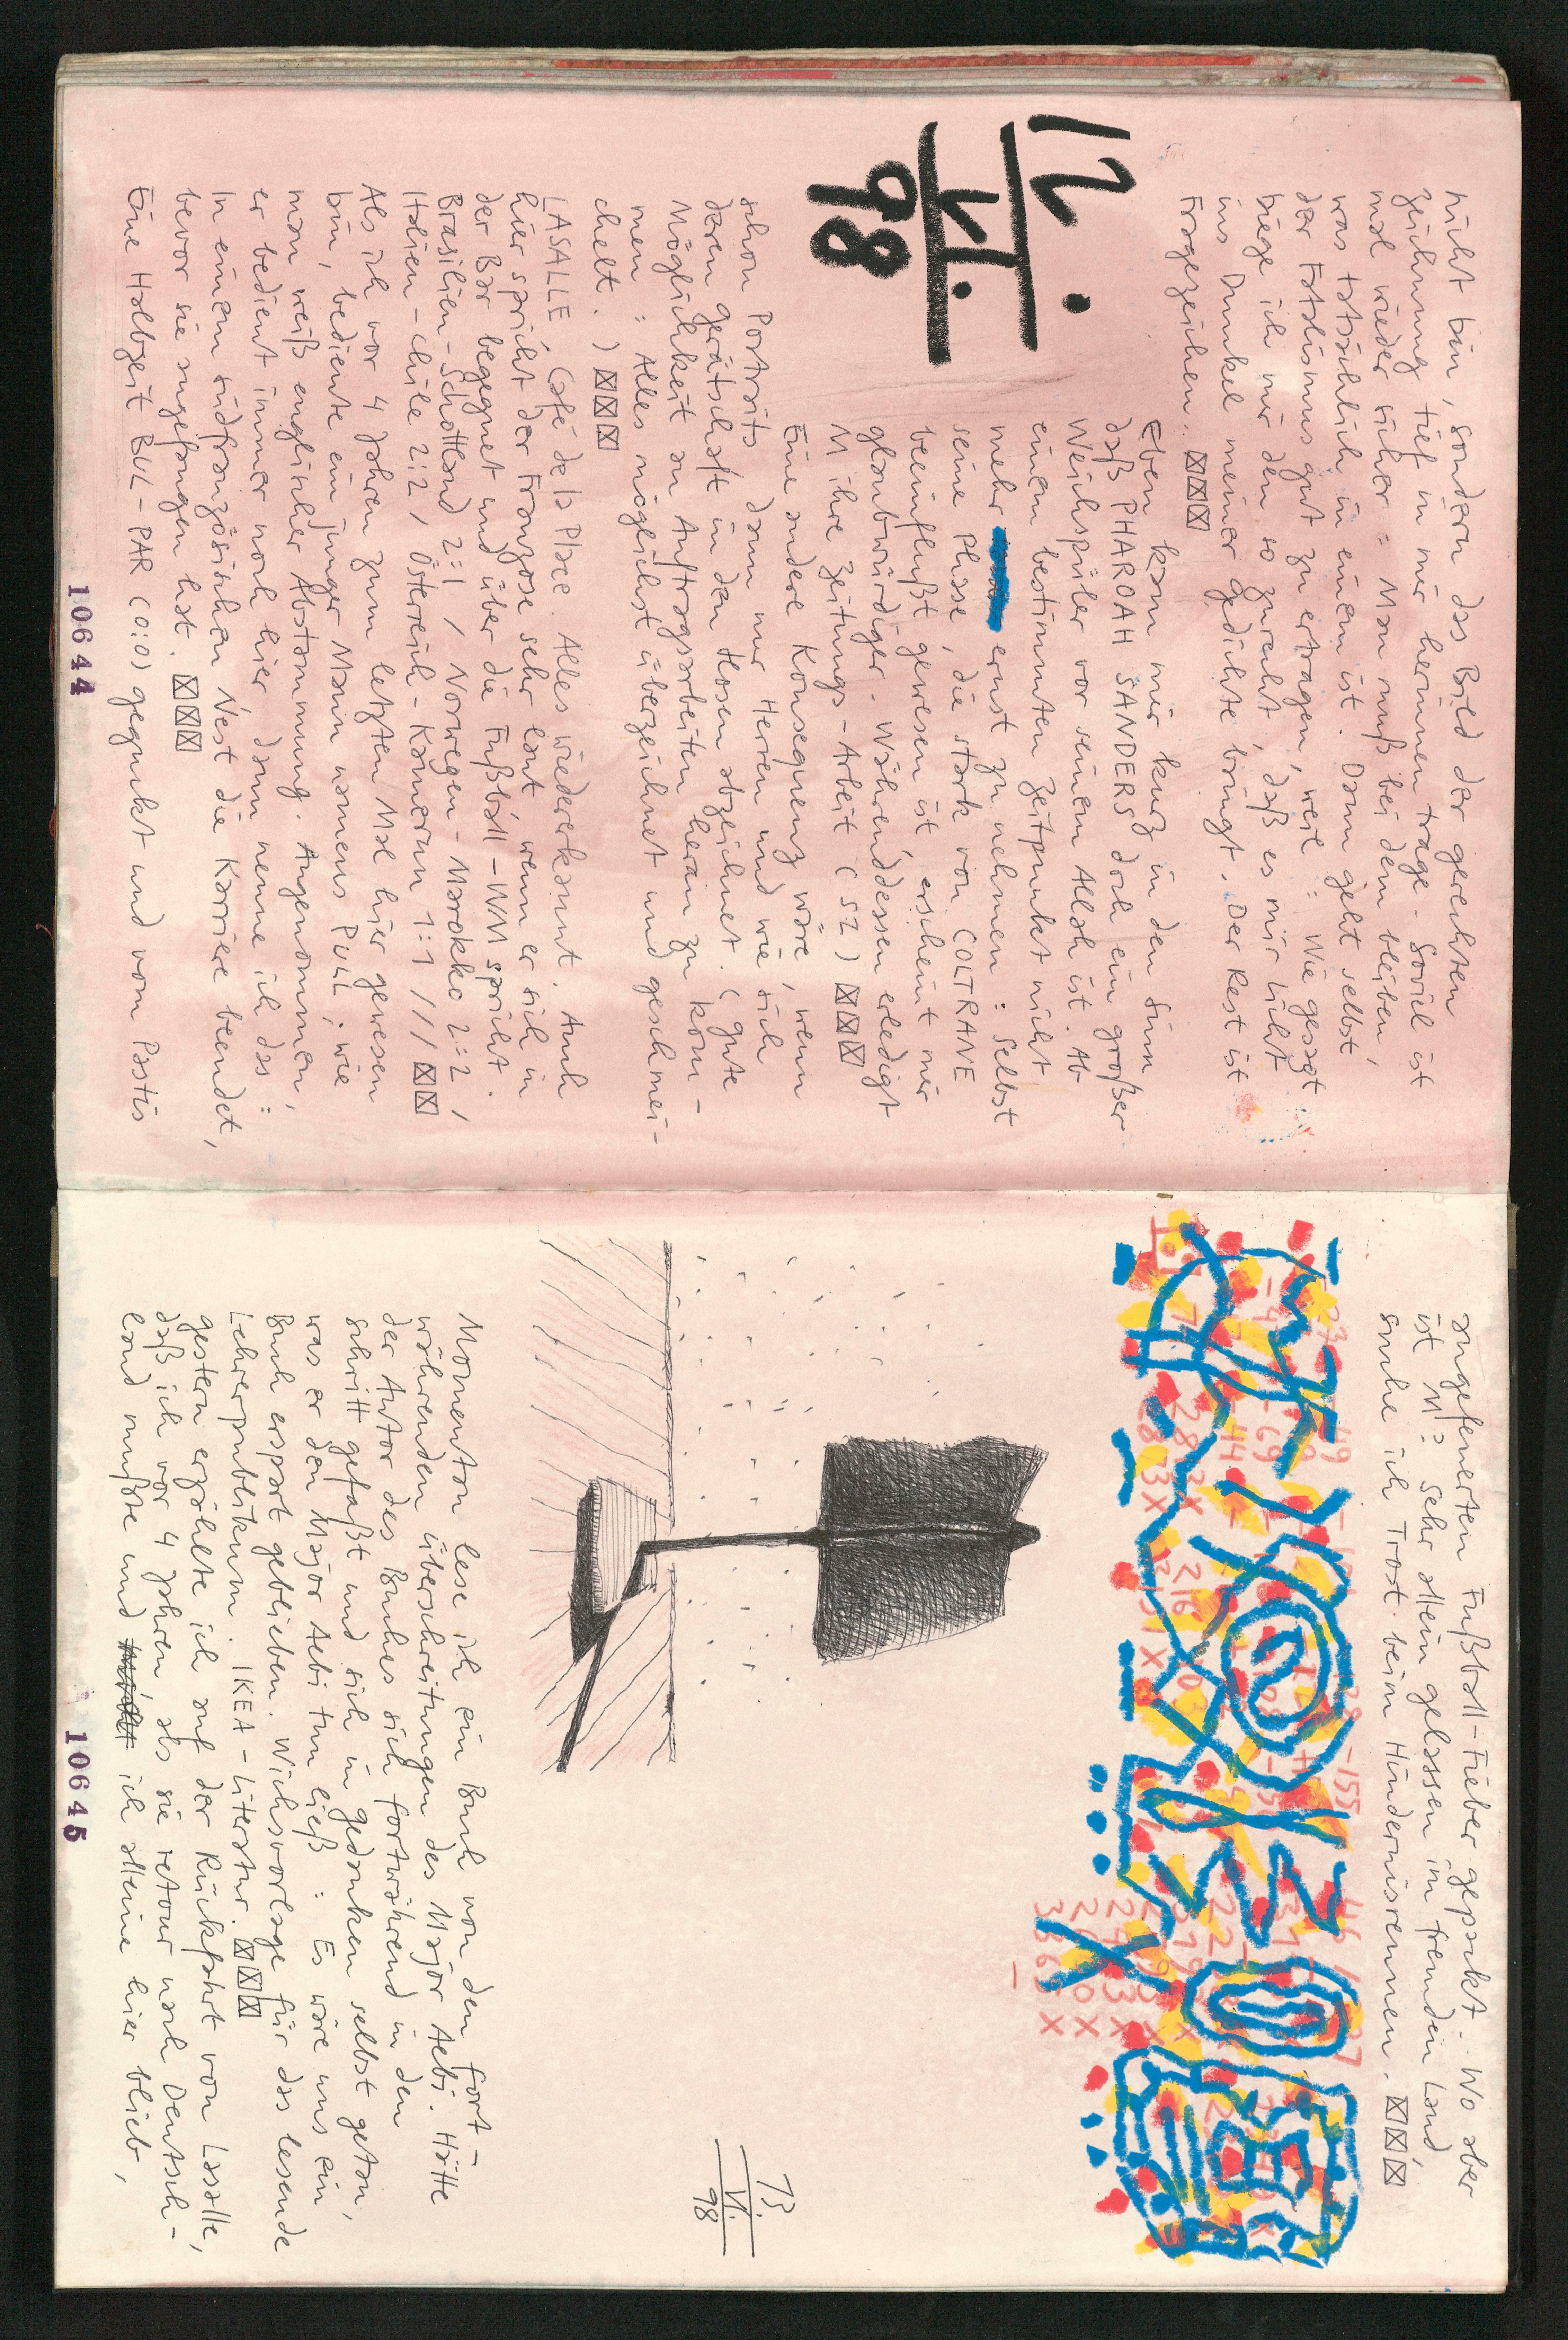 nicht bin, sondern das Bild der gerechten
Zeichnung tief in mir herinnen trage - Soviel ist
mal wieder sicher : Man muß bei dem bleiben,
was tatsächlich in einem ist. Dann geht selbst
der Fatalismus gut zu ertragen, weil : Wie gesagt
biege ich mir den so zurecht, daß es mir Licht
ins Dunkel meiner Gedichte bringt. Der Rest ist
Fragezeichen.
12.
VI.
98
Eben kam mir kurz in den Sinn
daß PHAROAH SANDERS doch ein großer
Weichspüler vor seinem Allah ist. Ab
einem bestimmten Zeitpunkt nicht
mehr ernst zu nehmen : Selbst
seine Phase, die stark von COLTRANE
beeinflußt gewesen ist, erscheint mir
glaubwürdiger. Währenddessen erledigt
M ihre Zeitungs-Arbeit (SZ)
Eine andere Konsequenz wäre, wenn
schon Portraits dann nur Herren und wie sich
deren Gerätschaft in den Hosen abzeichnet. (gute
Möglichkeit an Auftragsarbeiten heran zu kom-
men : Alles möglichst überzeichnet und geschmei-
chelt.)
LASALLE, Café de la Place. Alles wiedererkannt. Auch
hier spricht der Franzose sehr laut, wenn er sich in
der Bar begegnet und über die Fußball-WM spricht.
Brasilien-Schottland 2:1 / Norwegen-Marokko 2:2 /
Italien-Chile 2:2 / Österreich-Kamerun 1:1 ///
Als ich vor 4 Jahren zum letzten Mal hier gewesen
bin, bediente ein junger Mann namens Pull; wie
man weiß englischer Abstammung. Angenommen,
er bedient immer noch hier dann nenne ich das :
In einem südfranzösischen Nest die Karriere beendet,
bevor sie angefangen hat.
Eine Halbzeit BUL-PAR (0:0) geguckt und vom Pastis
10644
angefeuerten Fußball-Fieber gepackt. Wo aber
ist M? Sehr allein gelassen im fremden Land,
suche ich Trost beim Hindernisrennen.
13
VI.
98
Momentan lese ich ein Buch von den fort-
währenden Überschreitungen des Major Aebi. Hätte
der Autor des Buches sich fortwährend in den
Schritt gefaßt und sich in Gedanken selbst getan,
was er den Major Aebi tun ließ : Es wäre uns ein
Buch erspart geblieben. Wichsvorlage für das lesende
Lehrerpublikum. IKEA-Literatur.
gestern erzählte ich auf der Rückfahrt von Lasalle,
daß ich vor 4 Jahren, als sie retour nach Deutsch-
land mußte und ich alleine hier blieb,
10645